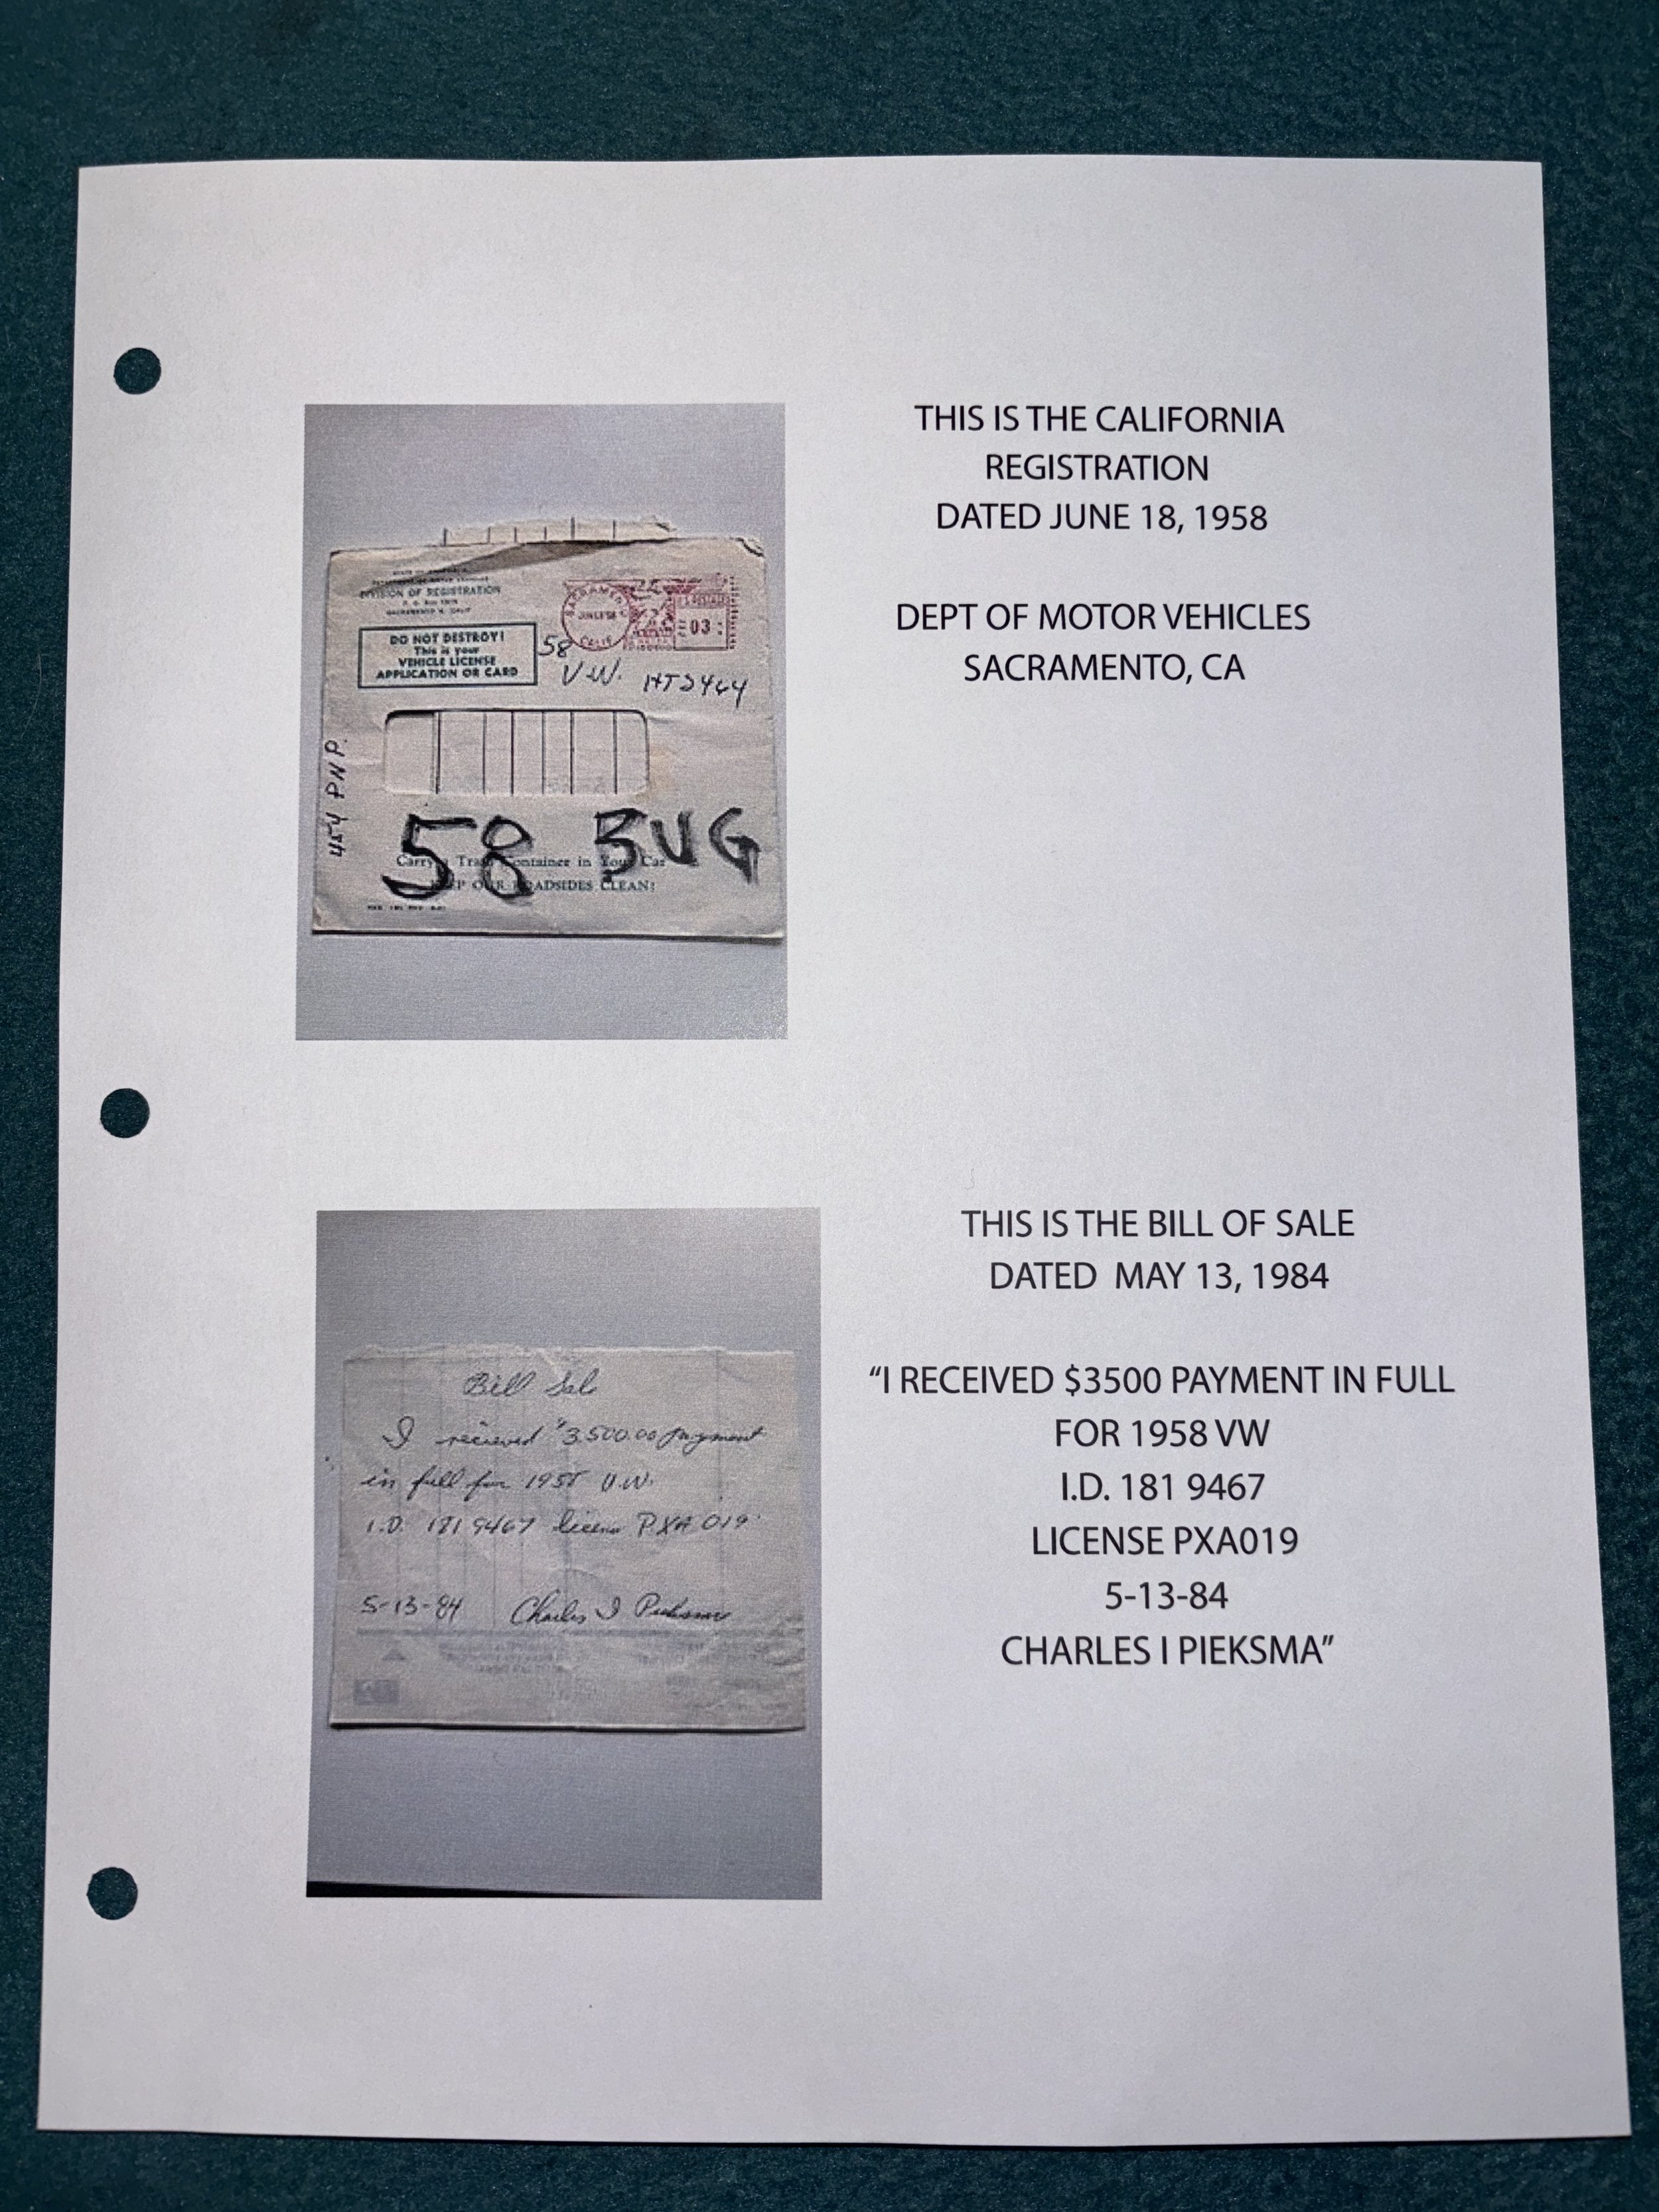 THIS IS THE CALIFORNIA
REGISTRATION
DATED JUNE 18, 1958
DEPT OF MOTOR VEHICLES
SACRAMENTO, CA
DIVISION OF REGISTRATION
DO NOT DESTROY!
This is your
VEHICLE LICENSE
APPLICATION OR CARD
SACRAMENTO
CALIF
03
58
V.W. HT2464
454 PNP.
58 BUG
Carry a Trash Container in Your Car
KEEP OUR ROADSIDES CLEAN!
THIS IS THE BILL OF SALE
DATED MAY 13, 1984
“I RECEIVED $3500 PAYMENT IN FULL
FOR 1958 VW
I.D. 181 9467
LICENSE PXA019
5-13-84
CHARLES I PIEKSMA”
Bill Sale
I recieved $3,500.00 payment
in full for 1958 V.W.
I.D. 181 9467 licens PXA 019
5-13-84 Charles I Pieksma